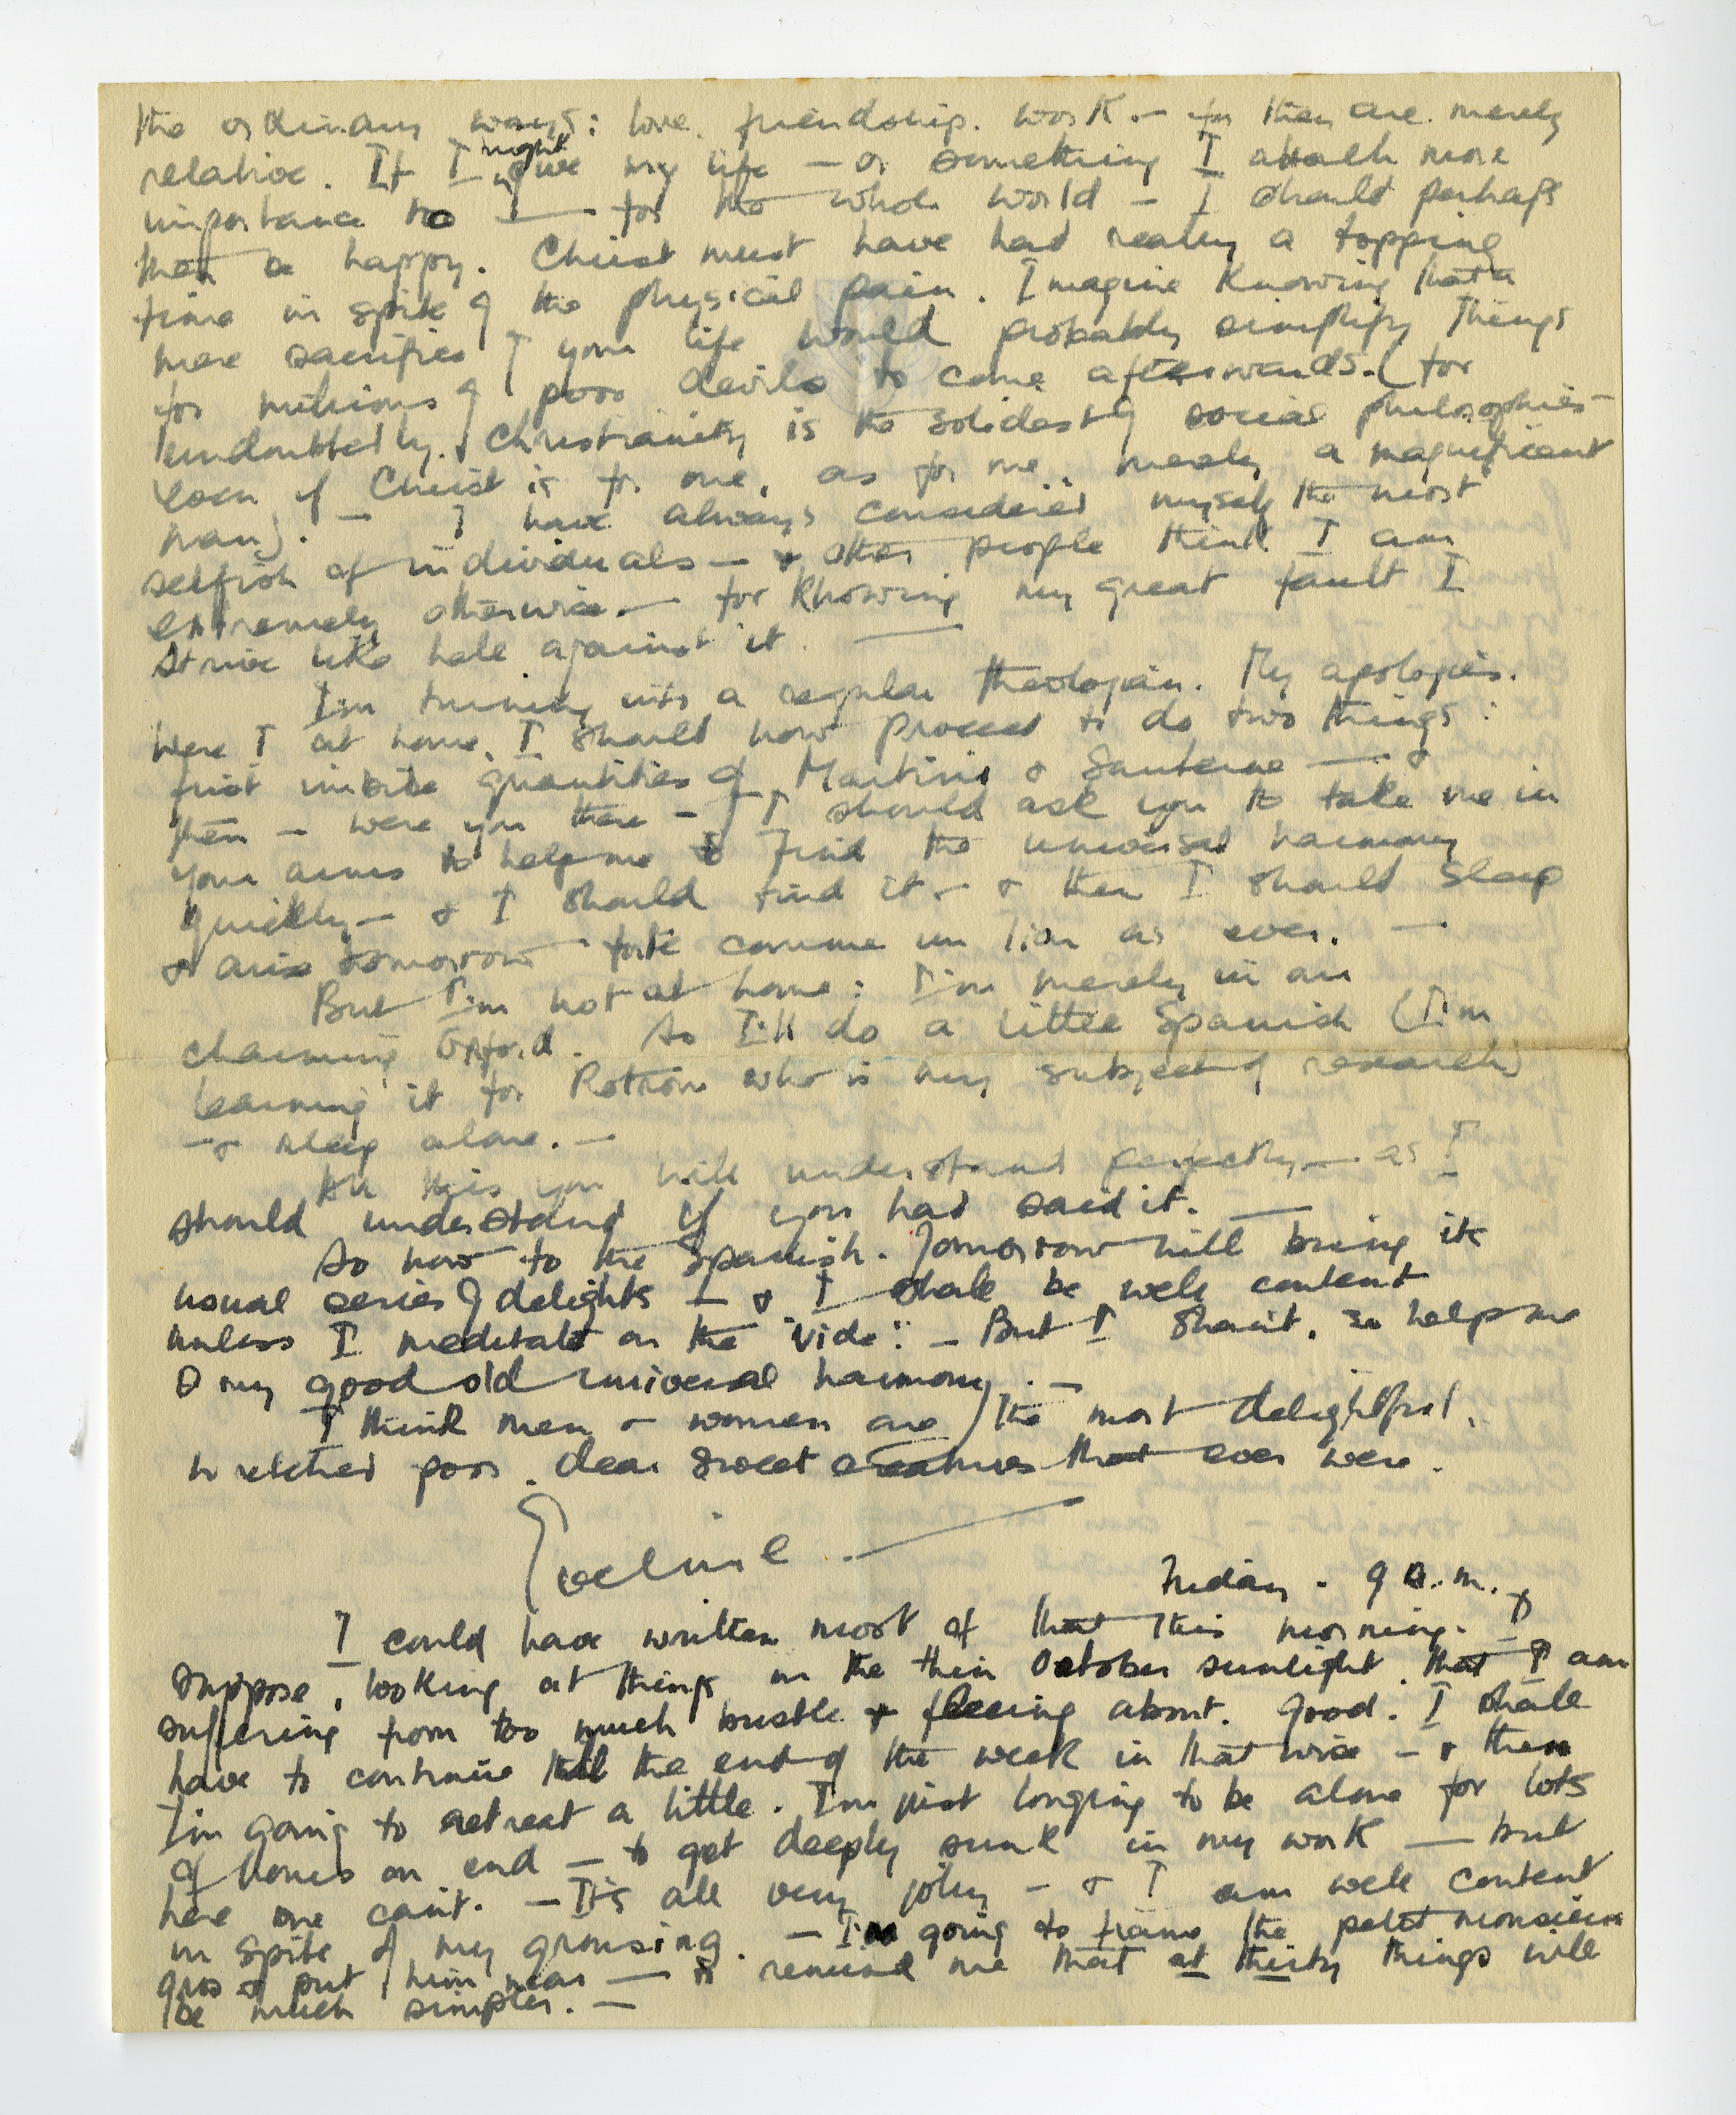 the ordinary ways: love, friendship, work. — for they are merely
relative. If I might give my life — or something I attach more
importance to —— for the whole world — I should perhaps
then be happy. Christ must have had really a topping
time in spite of the physical pain. Imagine knowing that a
mere sacrifice of your life would probably simplify things
for millions of poor devils to come afterwards. (for
undoubtedly, Christianity is the solidest of social philosophies —
even if Christ is for one, as for me, merely a magnificent
man). — I have always considered myself the most
selfish of individuals — & other people think I am
extremely otherwise. — for knowing my great fault I
strive like hell against it. ——
I'm turning into a regular theologian. My apologies.
Were I at home, I should now proceed to do two things:
first imbibe quantities of Martini & Sauterne —— &
then — were you there — I should ask you to take me in
your arms to help me to find the universal harmony
quickly — & I should find it — & then I should sleep
& arise tomorrow forte comme un lion as ever. —
But I'm not at home: I'm merely in an
charming Oxford. So I'll do a little Spanish (I'm
learning it for Rotrou who is my subject of research)
— & sleep alone. —
All this you will understand perfectly — as I
should understand if you had said it. ——
So now to the Spanish. Tomorrow will bring its
usual series of delights — & I shall be well content
unless I meditate on the "vide". — But I shan't, so help me
O my good old universal harmony. —
I think men & women are the most delightful,
wretched poor, dear sweet creatures that ever were.
Eveline. ——
Friday. 9 a.m.
I could have written most of that this morning. I
suppose, looking at things in the thin October sunlight, that I am
suffering from too much bustle & fleeing about. Good. I shall
have to continue till the end of the week in that wise — & then
I'm going to retreat a little. I'm just longing to be alone for lots
of hours on end — to get deeply sunk in my work —— but
here one can't. — It's all very jolly — & I am well content
in spite of my grousing. — I'm going to frame the petit monsieur
gros & put him near —— to remind me that at thirty things will
be much simpler. —